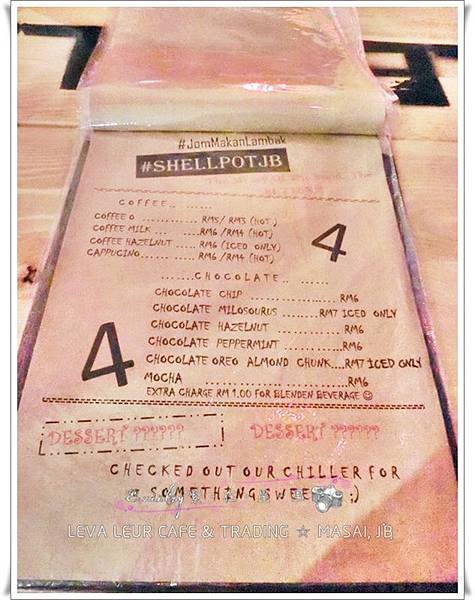 #JomMakanLambak
#SHELLPOTJB
COFFEE.. ......
COFFEE O ............. RM5/ RM3 (HOT )
COFFEE MILK ... .......RM6 /RM4 (HOT)
COFFEE HAZELNUT ...... RM6 (ICED ONLY)
CAPPUCINO............. RM6 /RM4 (HOT)
4
......CHOCOLATE.. ......
CHOCOLATE CHIP .................... RM6
CHOCOLATE MILOSOURUS ........RM7 ICED ONLY
CHOCOLATE HAZELNUT ................ RM6
CHOCOLATE PEPPERMINT ..............RM6
CHOCOLATE OREO ALMOND CHUNK....RM7 ICED ONLY
MOCHA ..............................RM6
4
EXTRA CHARGE RM 1.00 FOR BLENDEN BEVERAGE ☺
DESSERT ?????? DESSERT ??????
CHECKED OUT OUR CHILLER FOR
SOMETHING SWEE ;)
LEVA LEUR CAFE & TRADING ☆ MASAI, JB